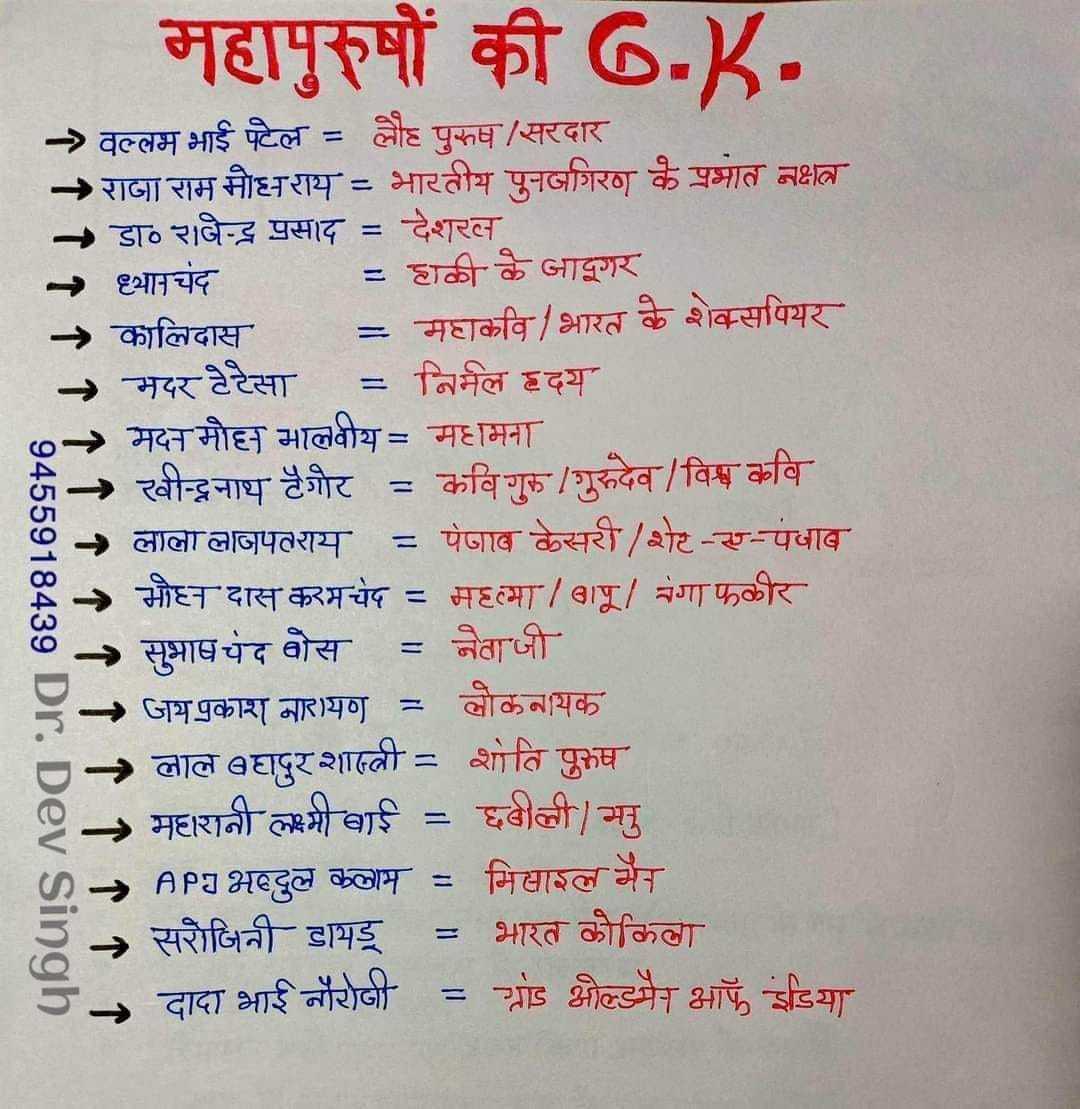 महापुरुषों की G.K.
→ वल्लभ भाई पटेल = लौह पुरुष / सरदार
→ राजा राम मोहन राय = भारतीय पुनर्जागरण के प्रभात नक्षत्र
→ डा० राजेन्द्र प्रसाद = देशरत्न
→ ध्यानचंद = हाकी के जादूगर
→ कालिदास = महाकवि / भारत के शेक्सपियर
→ मदर टेरेसा = निर्मल हृदय
→ मदन मोहन मालवीय = महामना
→ रवीन्द्रनाथ टैगोर = कवि गुरु / गुरुदेव / विश्व कवि
→ लाला लाजपतराय = पंजाब केसरी / शेर-ए-पंजाब
→ मोहन दास करमचंद = महत्मा / बापू / नंगा फकीर
→ सुभाष चंद बोस = नेता जी
→ जय प्रकाश नारायण = लोक नायक
→ लाल बहादुर शास्त्री = शांति पुरुष
→ महारानी लक्ष्मी बाई = छबीली / मनु
→ APJ अब्दुल कलाम = मिसाइल मैन
→ सरोजिनी डायडू = भारत कोकिला
→ दादा भाई नौरोजी = ग्रांड ओल्डमैन ऑफ इंडिया
9455918439 Dr. Dev Singh